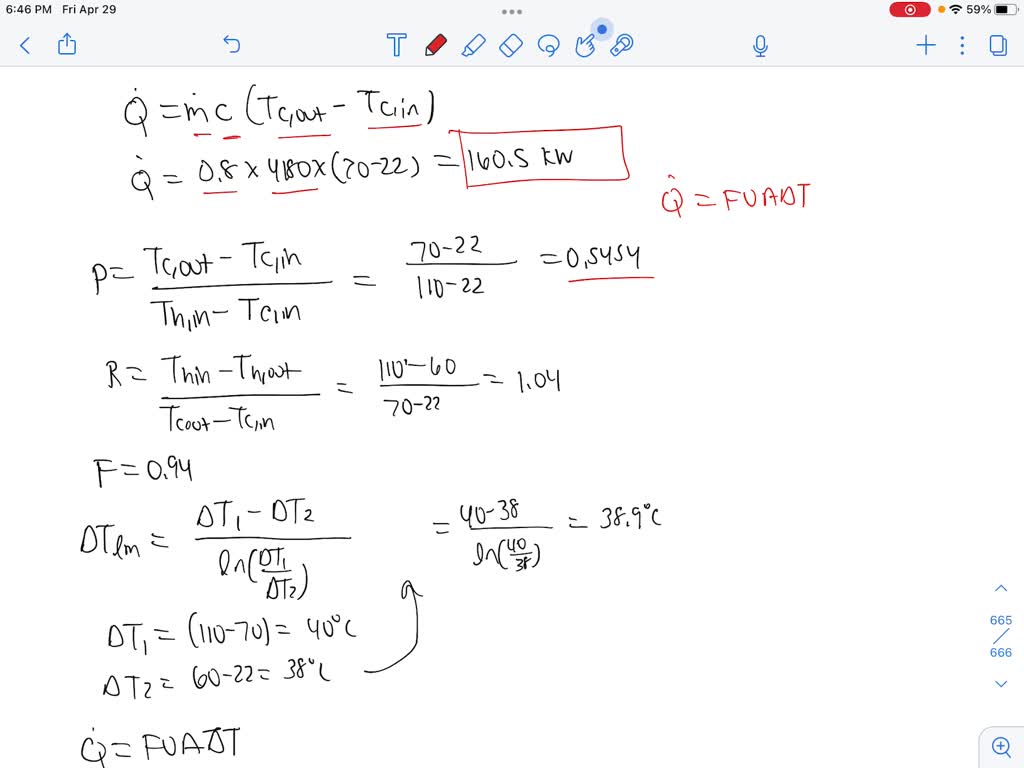 6:46 PM Fri Apr 29
59%
Q̇ = ṁ c (Tc,out - Tc,in)
Q̇ = 0.8 × 4180 × (70-22) = 160.5 kW
Q̇ = FUADT
P = (Tc,out - Tc,in) / (Th,in - Tc,in) = (70-22) / (110-22) = 0.5454
R = (Thin - Th,out) / (Tcout - Tc,in) = (110-60) / (70-22) = 1.04
F = 0.94
DTlm = (DT1 - DT2) / ln(DT1/DT2) = (40-38) / ln(40/38) = 38.9°C
DT1 = (110-70) = 40°C
DT2 = 60-22 = 38°C
Q̇ = FUADT
665
/
666